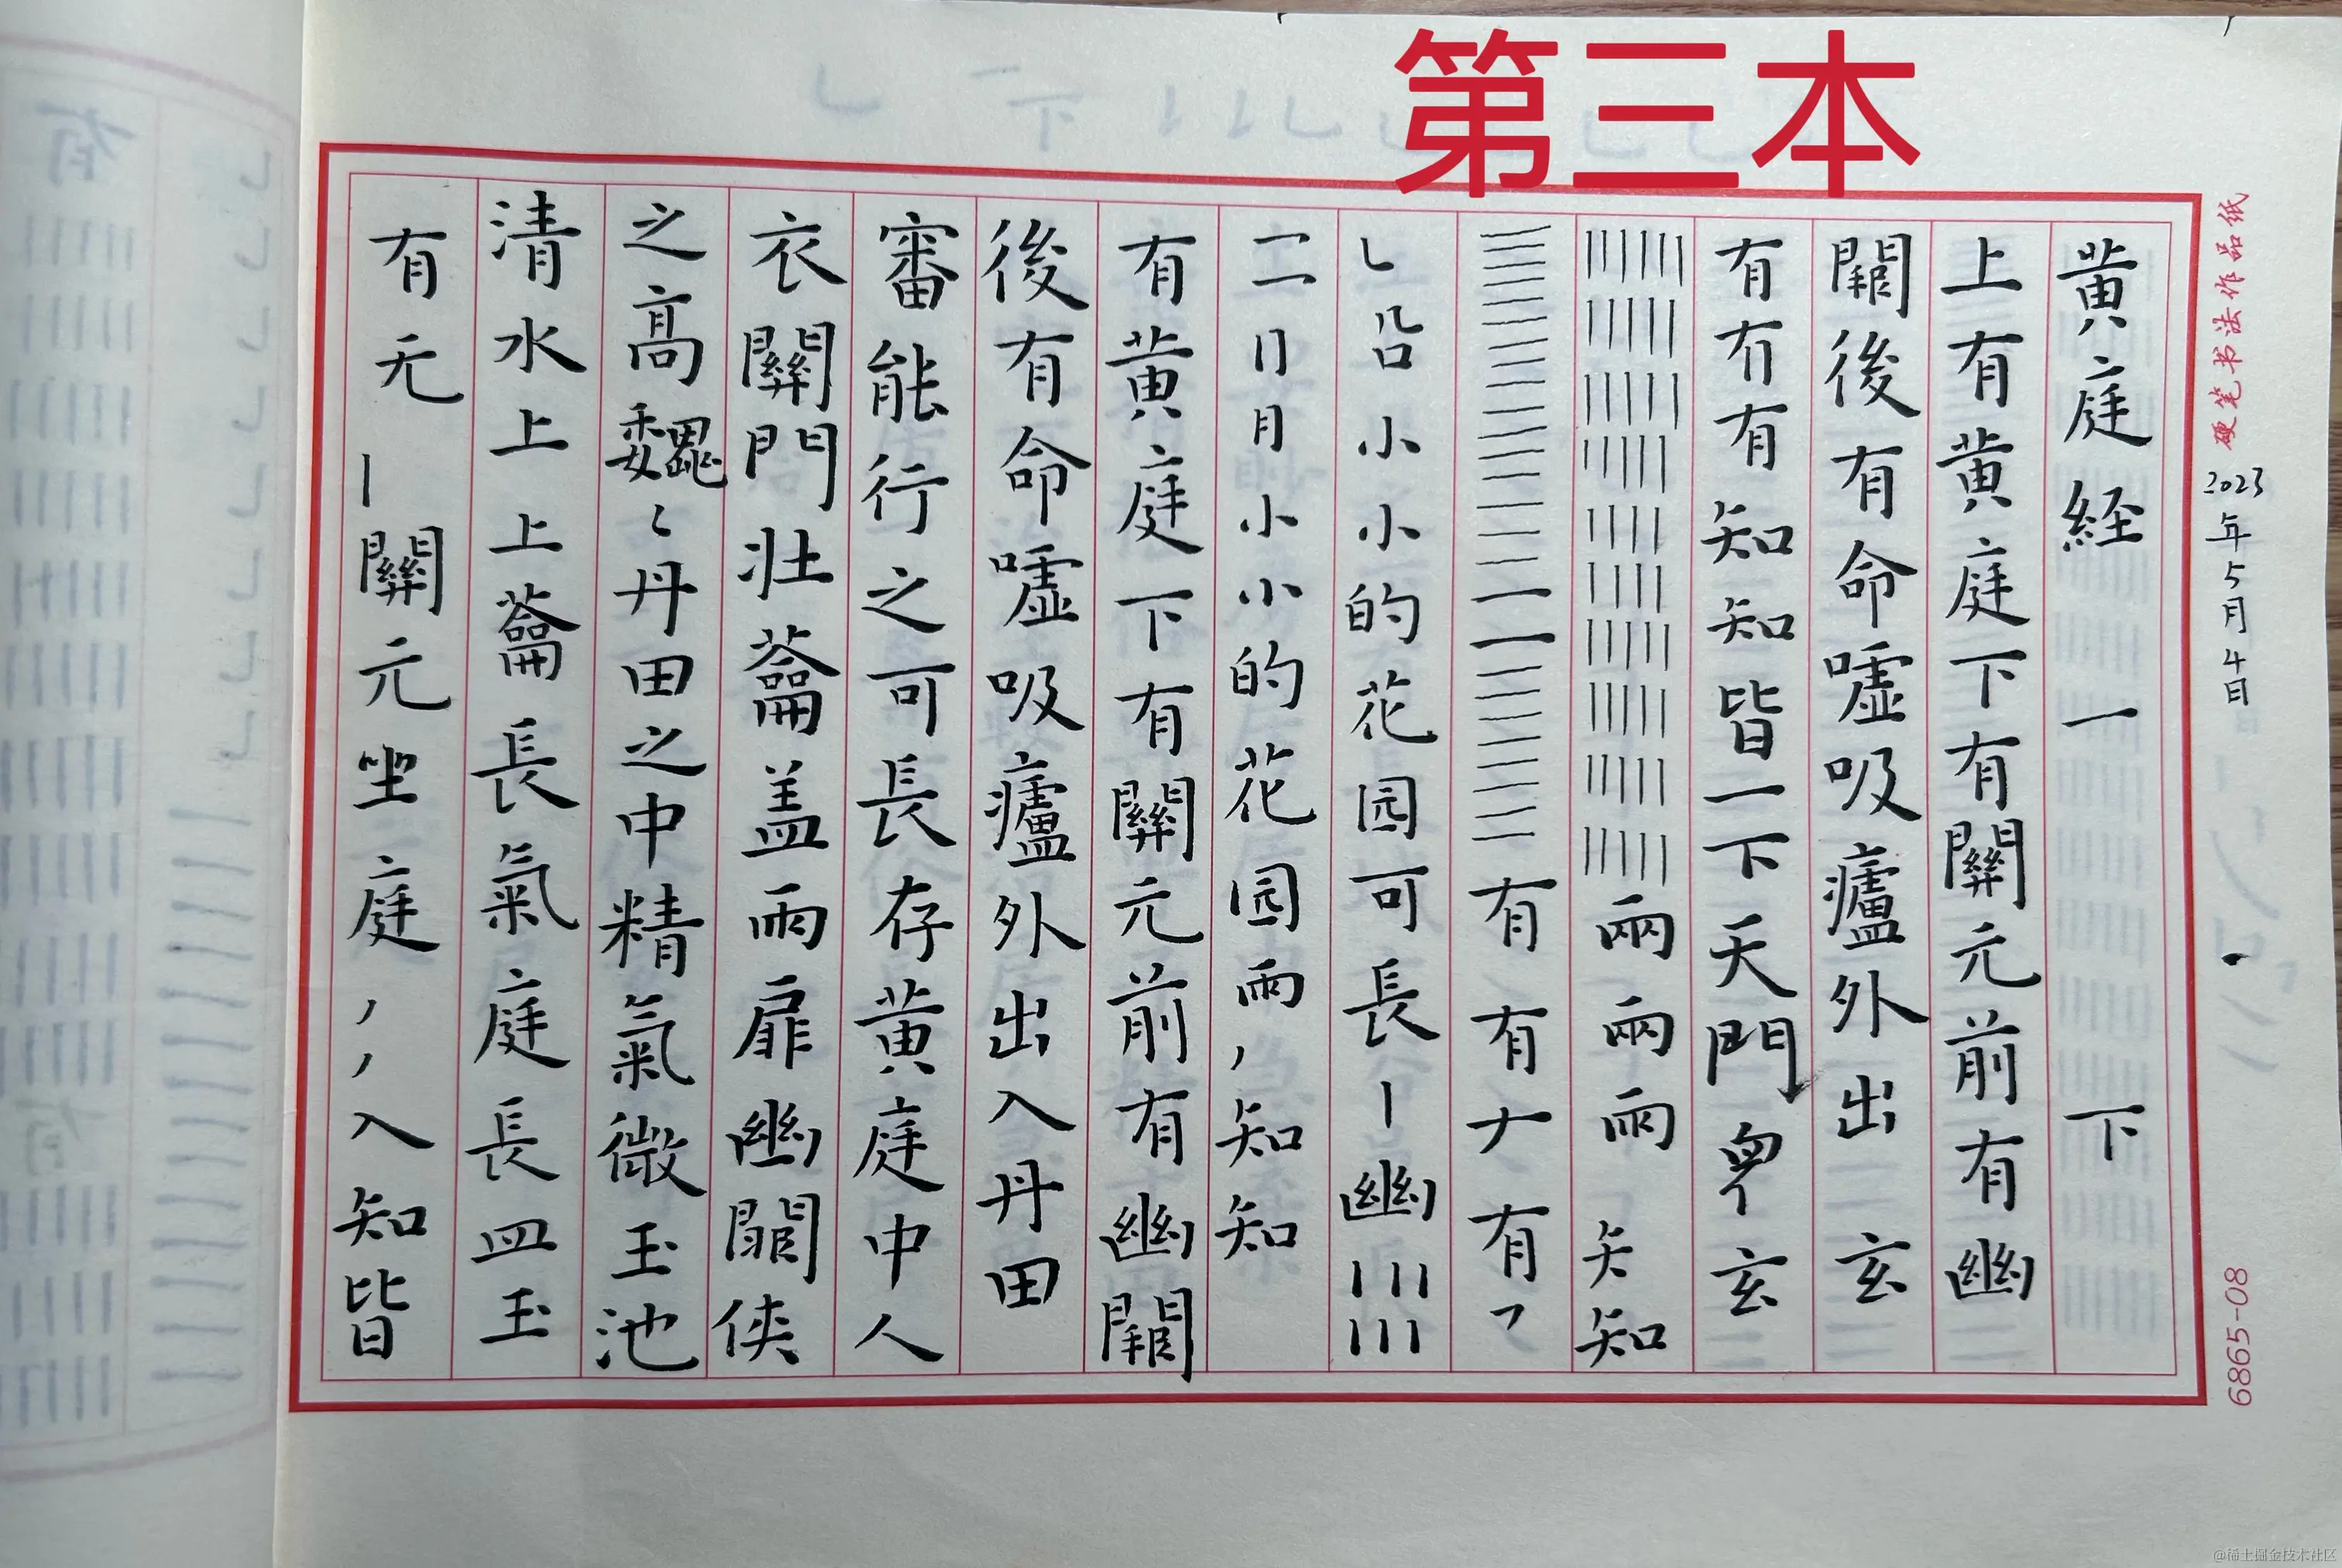 第三本
硬笔书法作品纸
2023年5月4日
6865-08
黄庭経一下
上有黄庭下有關元前有幽
闕後有命嘘吸廬外出玄
有有有知知皆一下天門玄
兩兩兩知
有有有
沿小小的花园可長幽
二月小小的花园兩知知
有黄庭下有關元前有幽闕
後有命嘘吸廬外出入丹田
審能行之可長存黄庭中人
衣關門壮蘥盖兩扉幽闕侠
之高魏丹田之中精氣微玉池
清水上上蘥長氣庭長皿玉
有无關元坐庭入知皆
@稀土掘金技术社区